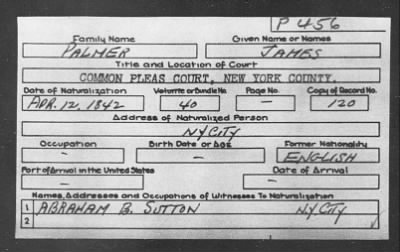 P 456
Family Name Given Name or Names
PALMER JAMES
Title and Location of Court
COMMON PLEAS COURT, NEW YORK COUNTY.
Date of Naturalization Volume or Bundle No. Page No. Copy of Record No.
APR. 12, 1842 40 — 120
Address of Naturalized Person
NYCITY
Occupation Birth Date or Age Former Nationality
— — ENGLISH
Port of Arrival in the United States Date of Arrival
— —
Names, Addresses and Occupations of Witnesses To Naturalization
1 ABRAHAM B. SUTTON NYCITY
2